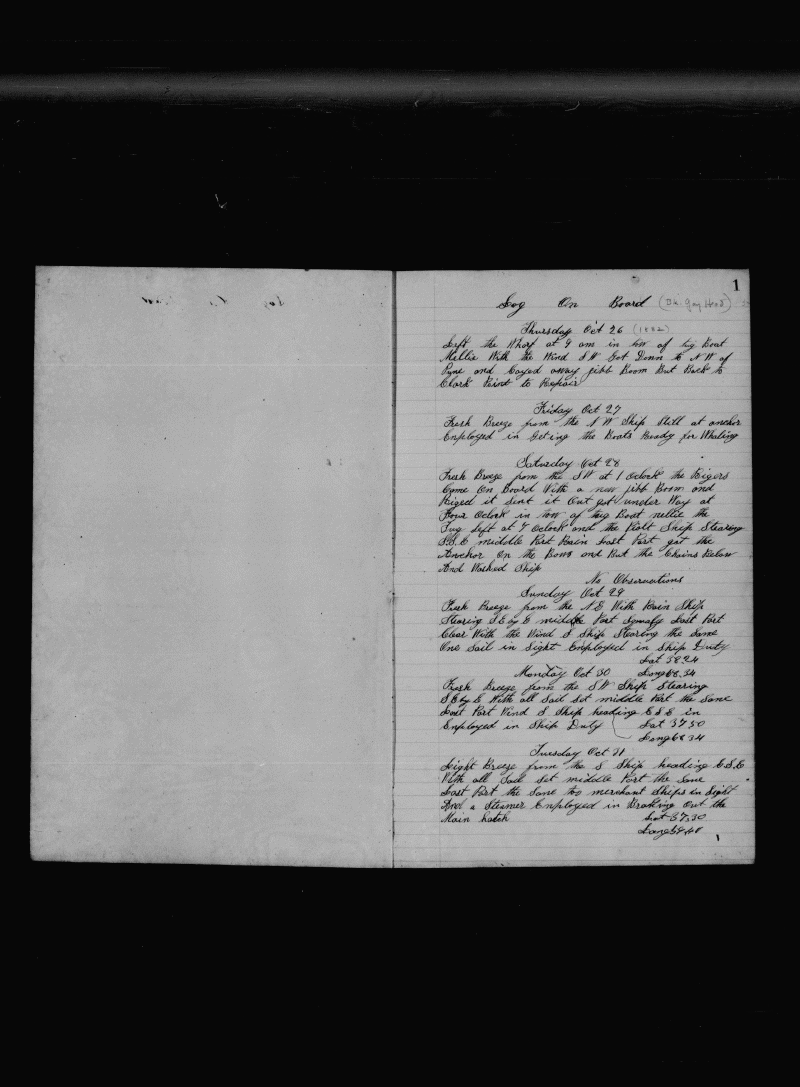 1
Log On Board (Bk. Gay Head)
Thursday Oct 26 (1882)
Left the Wharf at 9 am in tow of tug Boat
Nellie With the Wind SW Got Down to NW of
and away jibb Boom But Back to
Clark Point to Repair
Friday Oct 27
Fresh Breeze from the NW Ship Still at anchor
Employed in Geting the Boats Ready for Whaling
Saturday Oct 28
Fresh Breeze from the SW at 1 Oclock the Rigers
Came On Board With a new jibb Boom and
Riged it Sent it Out got under Way at
Four Oclock in tow of tug Boat nellie the
Tug Left at 7 Oclock and the Pilot Ship Stearing
S.S.E middle Part Rain Last Part got the
Anchor On the Bows and Put the Chains Below
And Washed Ship
No Observations
Sunday Oct 29
Fresh Breeze from the N.E With Rain Ship
Stearing S.E by E middle Part Squally Last Part
Clear With the Wind S Ship Stearing the Same
One Sail in Sight Employed in Ship Duty
Lat 38.24
Monday Oct 30 Long 68.34
Fresh Breeze from the SW Ship Stearing
S.E by E With all Sail Set middle Part the Same
Last Part Wind S Ship heading E S E in
Employed in Ship Duty Lat 37.50
Long 68 34
Tuesday Oct 31
Leight Breeze from the S Ship heading E.S.E
With all Sail Set middle Part the Same
Last Part the Same two merchant Ships in Sight
And a Steamer Employed in Braking Out the
Main hatch Lat 37.30
Long